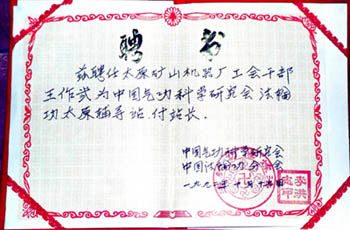 聘书
兹聘任太原矿山机器厂工会干部
王作武为中国气功科学研究会法轮
功太原辅导站付站长.
中国气功科学研究会
中国法轮功分会